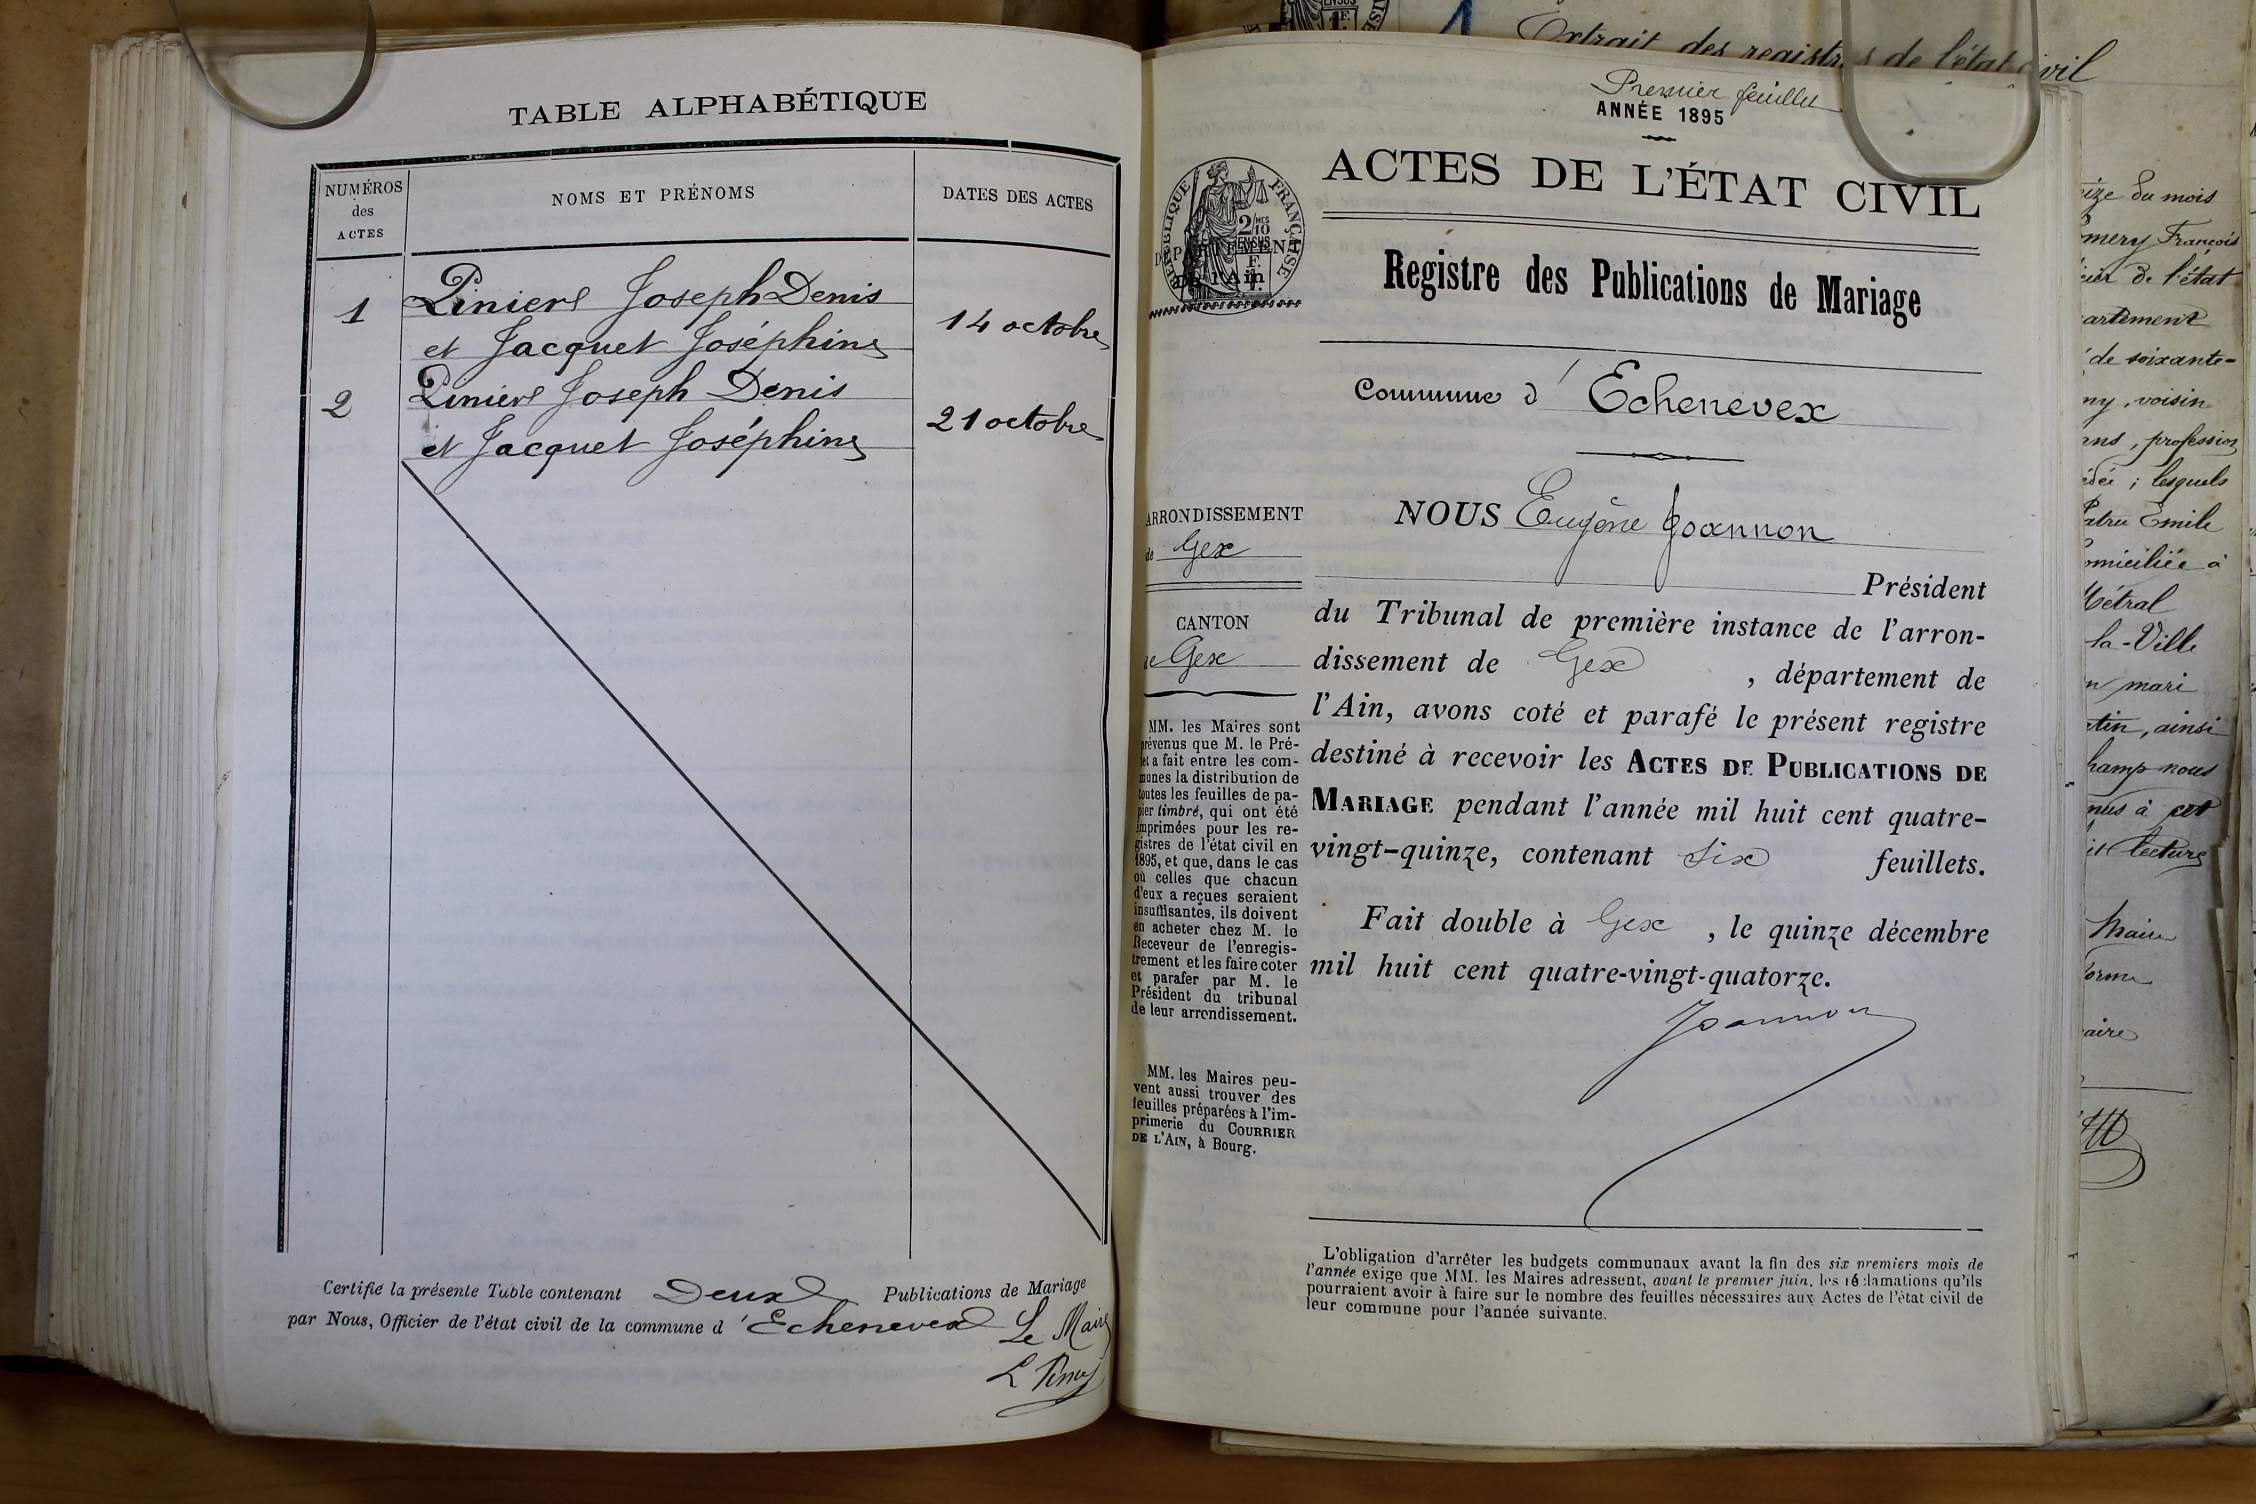 TABLE ALPHABÉTIQUE
NUMÉROS
des
ACTES
NOMS ET PRÉNOMS
DATES DES ACTES
1
Piniere Joseph Denis
et Jacquet Joséphine
14 octobre
2
Piniere Joseph Denis
et Jacquet Joséphine
21 octobre
Certifié la présente Table contenant Deux Publications de Mariage
par Nous, Officier de l'état civil de la commune d'Echenevex Le Maire
Extrait des registres de l'état civil
Premier feuillet
ANNÉE 1895
ACTES DE L'ÉTAT CIVIL
RÉPUBLIQUE FRANÇAISE
2/10
EN SUS
DÉPARTEMENT
De l'Ain
Registre des Publications de Mariage
Commune d'Echenevex
ARRONDISSEMENT
de Gex
CANTON
de Gex
MM. les Maires sont
prévenus que M. le Pré-
fet a fait entre les com-
munes la distribution de
toutes les feuilles de pa-
pier timbré, qui ont été
imprimées pour les re-
gistres de l'état civil en
1895, et que, dans le cas
où celles que chacun
d'eux a reçues seraient
insuffisantes, ils doivent
en acheter chez M. le
Receveur de l'enregis-
trement et les faire coter
et parafer par M. le
Président du tribunal
de leur arrondissement.
MM. les Maires peu-
vent aussi trouver des
feuilles préparées à l'im-
primerie du COURRIER
DE L'AIN, à Bourg.
NOUS Eugène Joannon
Président
du Tribunal de première instance de l'arron-
dissement de Gex, département de
l'Ain, avons coté et parafé le présent registre
destiné à recevoir les ACTES DE PUBLICATIONS DE
MARIAGE pendant l'année mil huit cent quatre-
vingt-quinze, contenant six feuillets.
Fait double à Gex, le quinze décembre
mil huit cent quatre-vingt-quatorze.
Joannon
L'obligation d'arrêter les budgets communaux avant la fin des six premiers mois de
l'année exige que MM. les Maires adressent, avant le premier juin, les réclamations qu'ils
pourraient avoir à faire sur le nombre des feuilles nécessaires aux Actes de l'état civil de
leur commune pour l'année suivante.
du mois
François
de l'état
de soixante-
voisin
profession
lesquels
Emile
à
Métral
la-Ville
mari
ainsi
nous
à cet
lecture
Maire